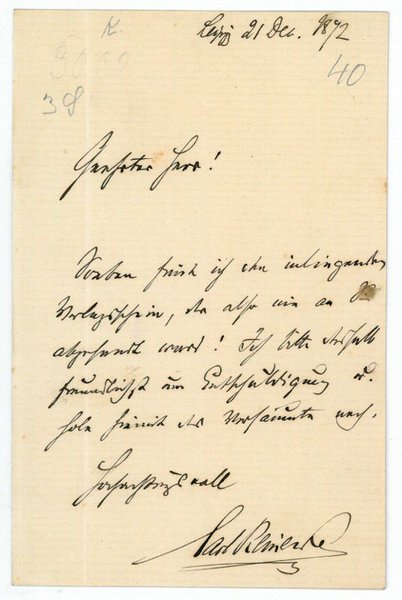 K
Leipzig 21 Dec. 1872
40
Geehrter Herr!
Soeben finde ich den inliegenden
Verlagsschein, der also nie an Sie
abgesandt ward! Ich bitte deshalb
freundlichst um Entschuldigung u.
hole hiemit das Versäumte nach.
Hochachtungsvoll
Carl Reinecke